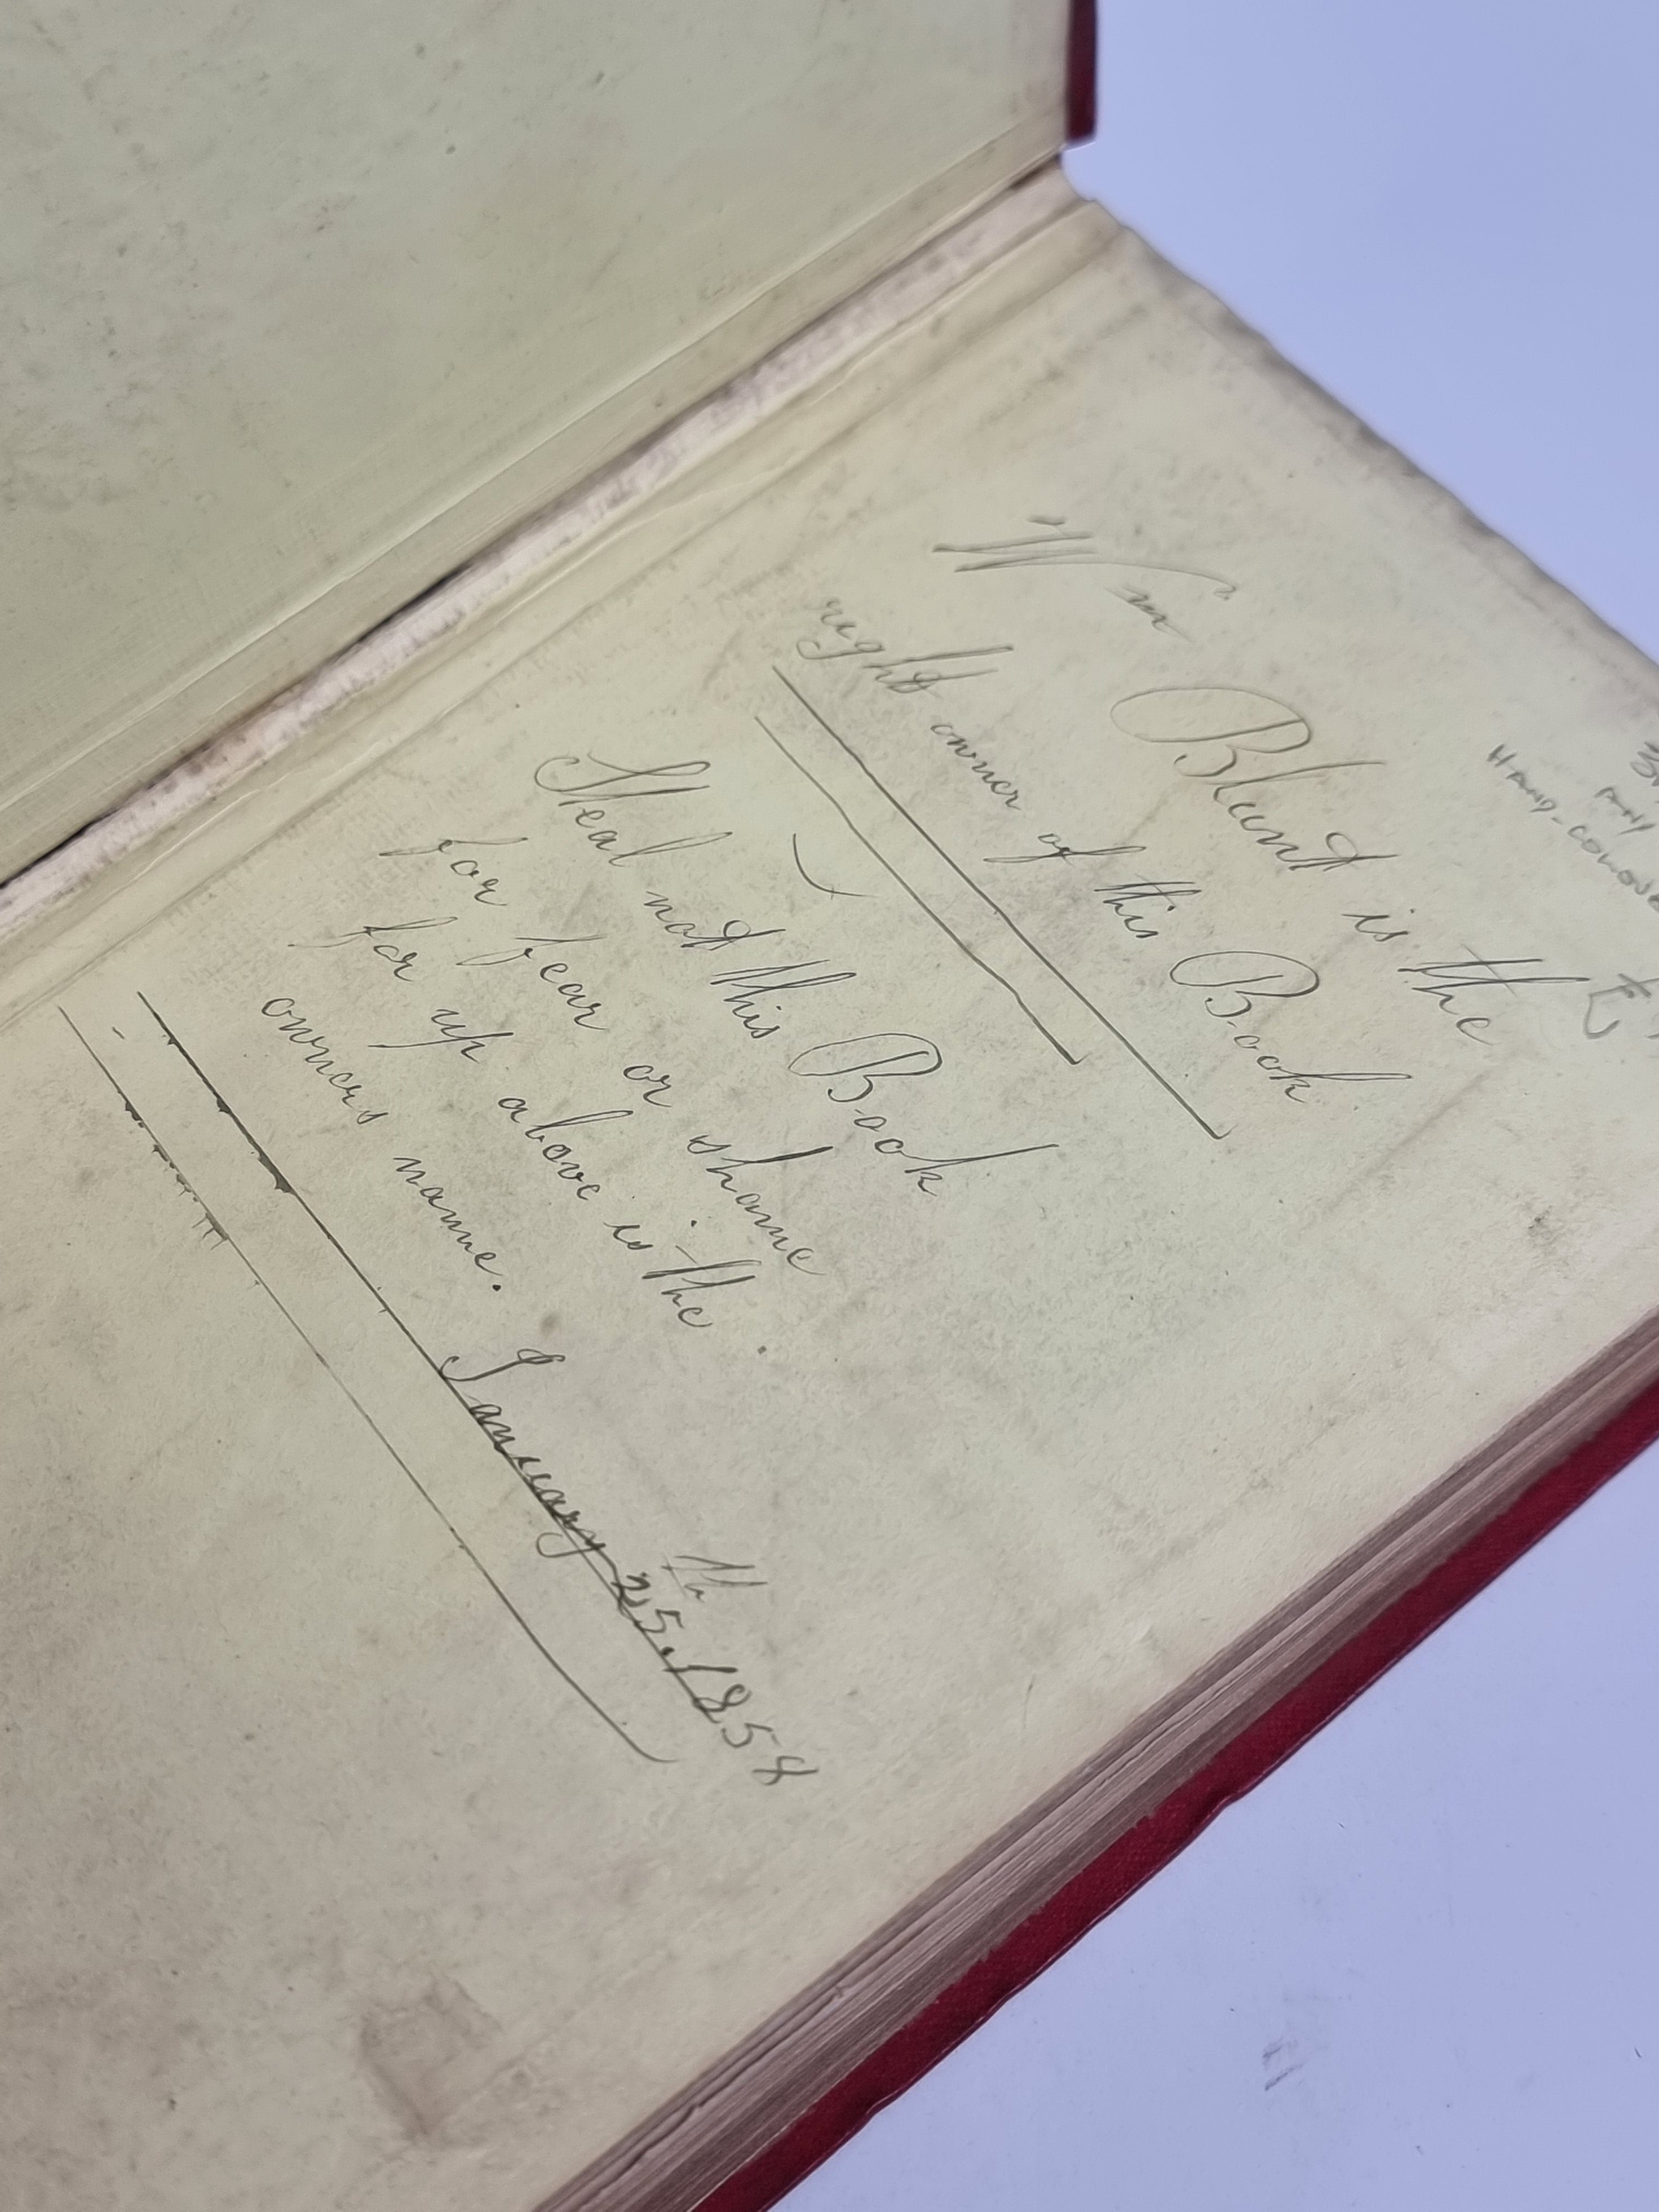 HAND-COLOURE
£
Wm Blunt is the
right owner of this Book
Steal not this Book
for fear or shame
for up above is the
owners name.
January 25th 1858